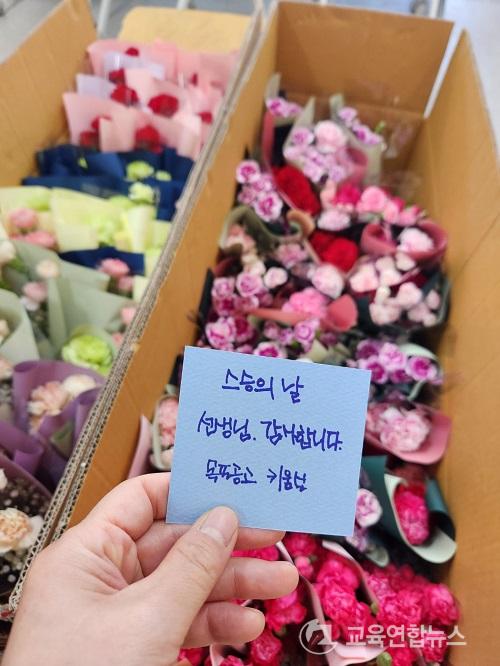 스승의 날
선생님. 감사합니다.
목포중고 키움넷
교육연합뉴스